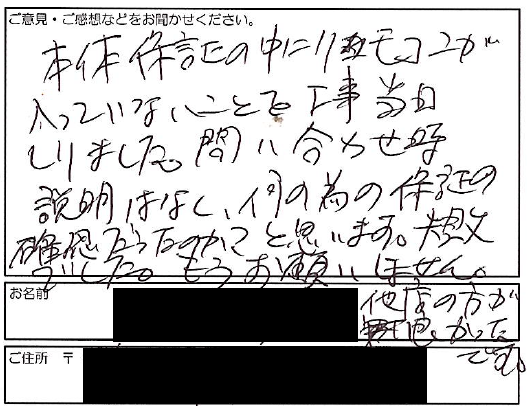 ご意見・ご感想などをお聞かせください。
本体保証の中にリモコンが
入っていないことを工事当日
しりました。問い合わせ時
説明はなく、何の為の保証の
確認だったのか?と思います。大変
でした。もうお願いしません。
お名前
他店の方が
かった
です。
ご住所 〒